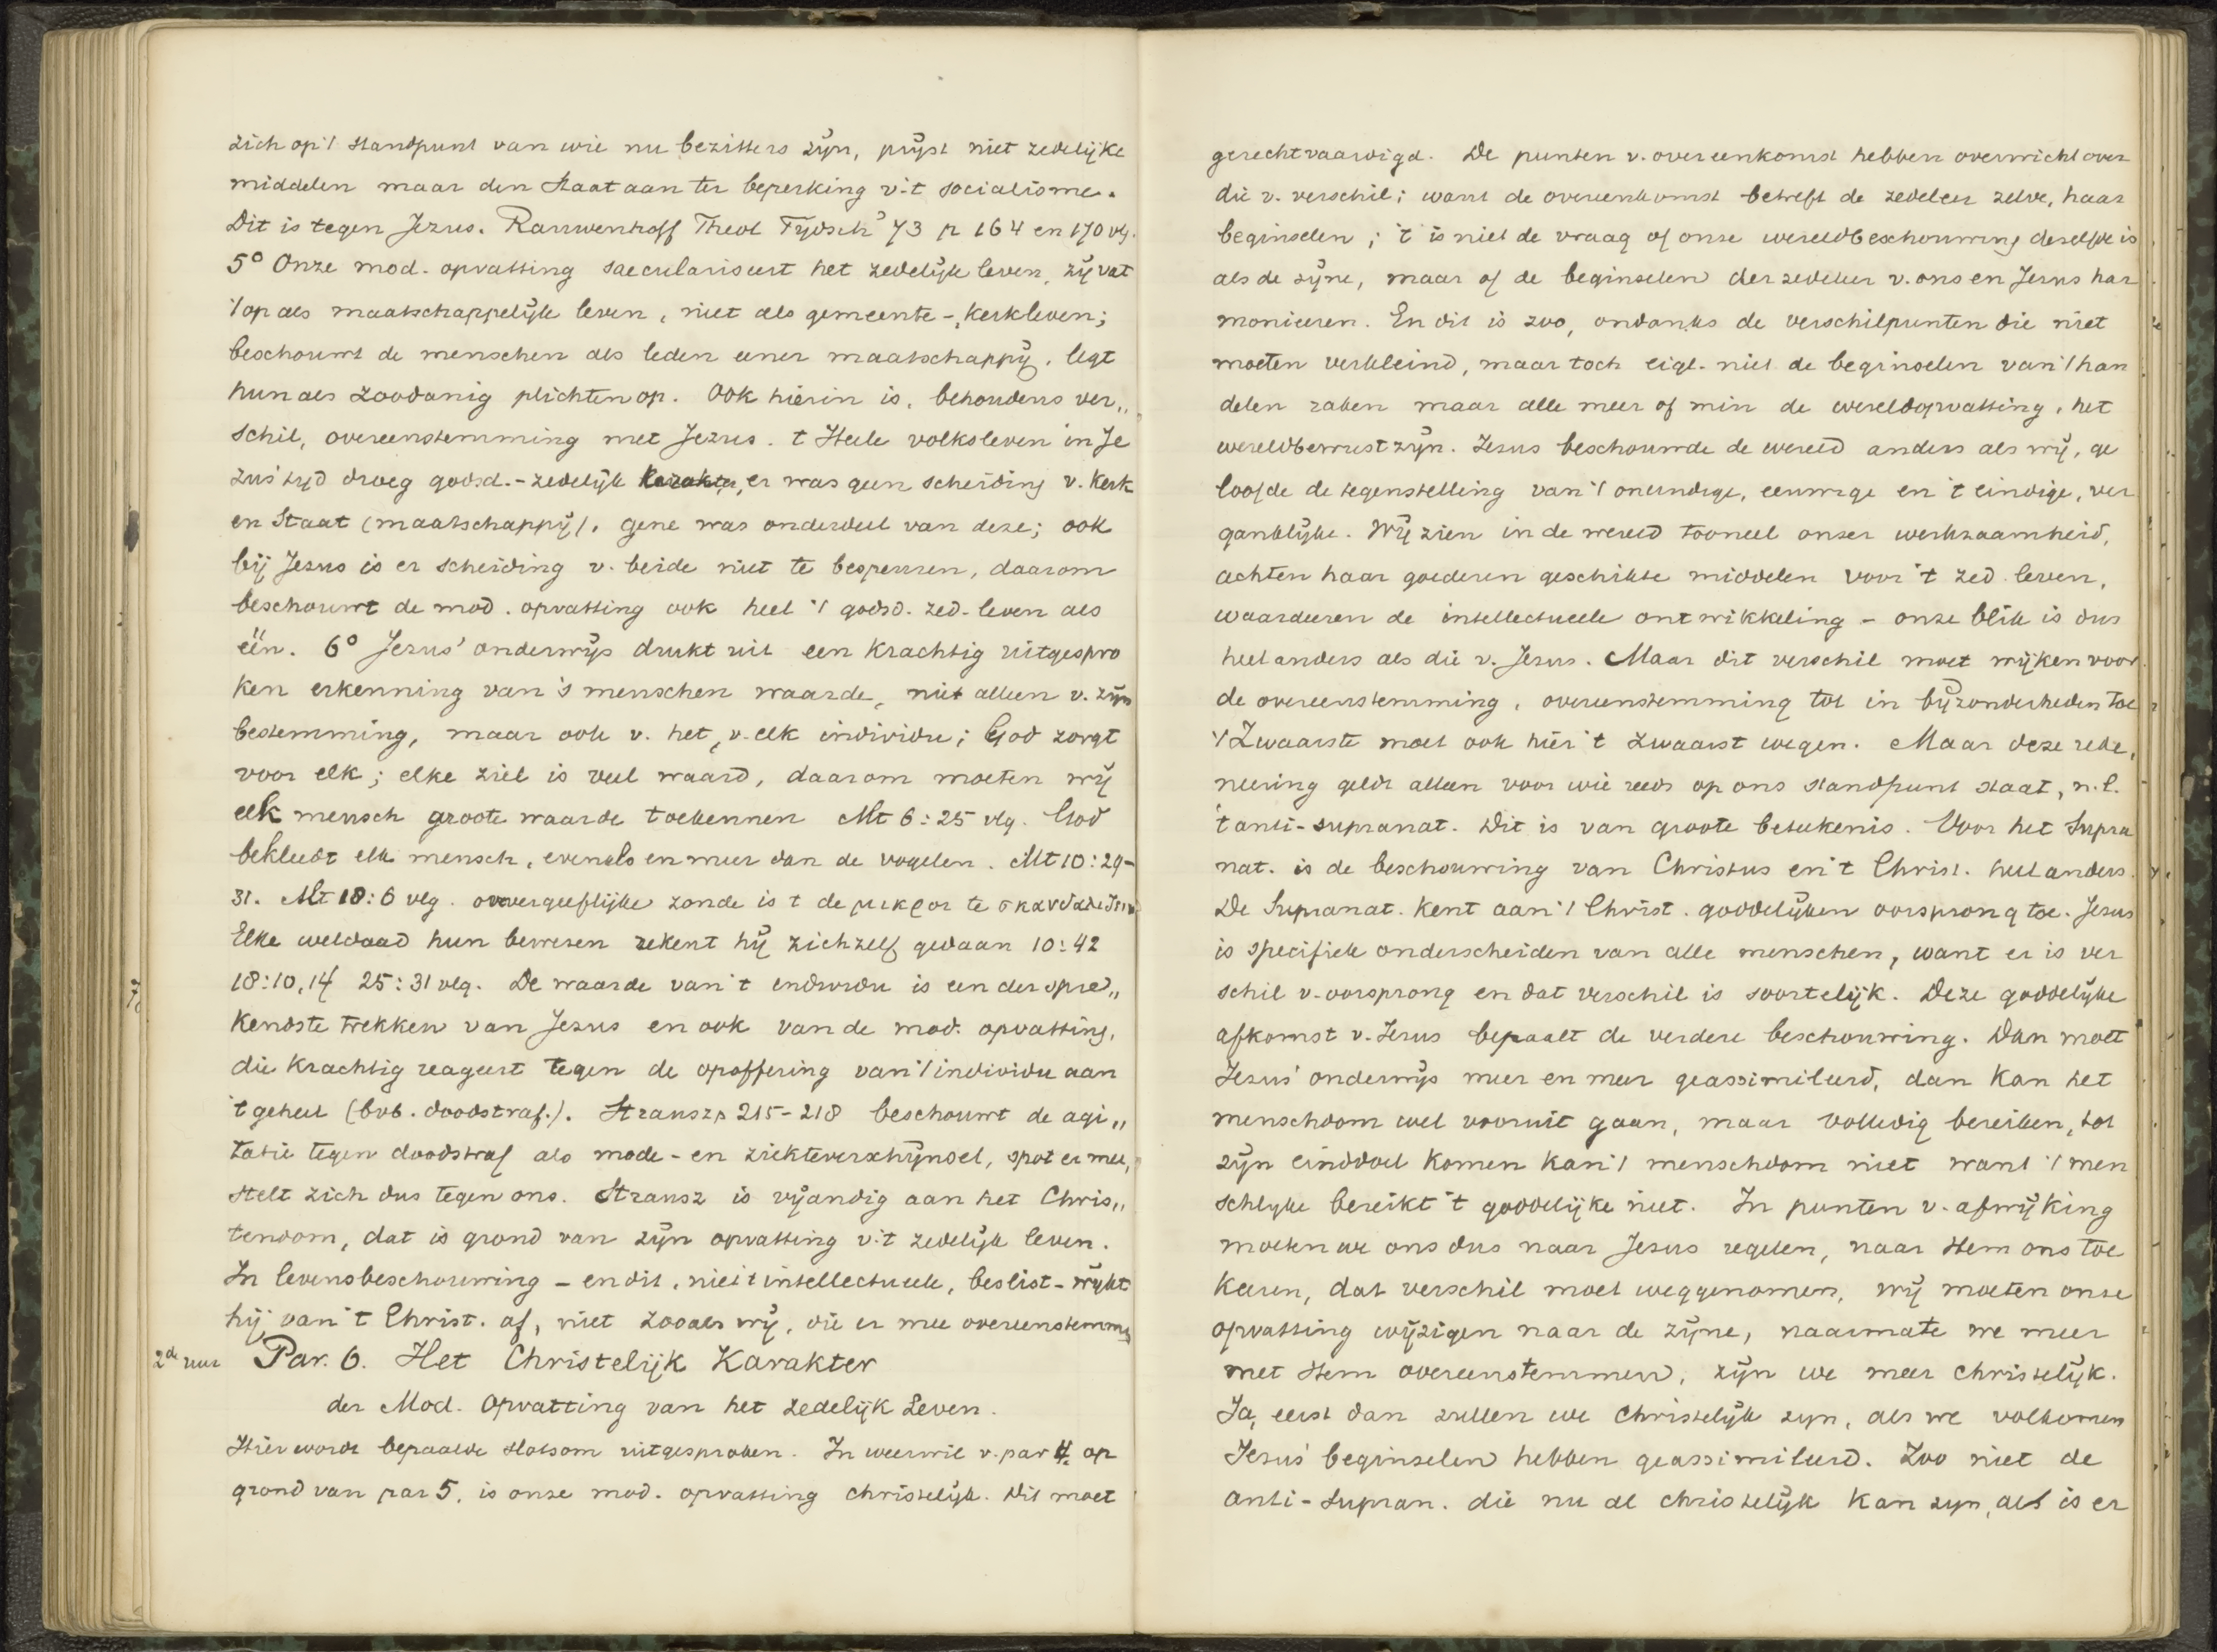 zich op 't standpunt van wie nu bezitters zijn, prijst niet zedelijke
middelen maar den Staat aan ter beperking v. 't socialisme.
Dit is tegen Jezus. Rauwenhoff Theol Tydsch' 73 p 164 en 170 vlg.
5° Onze mod. opvatting saeculariseert het zedelijk leven, zij vat
't op als maatschappelijk leven, niet als gemeente-, kerkleven;
beschouwt de menschen als leden eener maatschappij, legt
hun als zoodanig plichten op. Ook hierin is, behoudens ver„
schil, overeenstemming met Jezus. 't Heele volksleven in Je
zus' tijd droeg godsd.-zedelijk karakter, er was geen scheiding v. Kerk
en Staat (maatschappij), gene was onderdeel van deze; ook
bij Jezus is er scheiding v. beide niet te bespeuren, daarom
beschouwt de mod. opvatting ook heel 't godsd. zed. leven als
één. 6° Jezus' onderwijs drukt uit een krachtig uitgespro
ken erkenning van 's menschen waarde, niet alleen v. zijn
bestemming, maar ook v. het, v. elk individu; God zorgt
voor elk; elke ziel is veel waard, daarom moeten wij
elk mensch groote waarde toekennen Mt 6:25 vlg. God
bekleedt elk mensch, evenals en meer dan de vogelen. Mt 10:29-
31. Mt 18:6 vlg. onvergeeflijke zonde is 't de μικροι te
Elke weldaad hun bewezen rekent hij zichzelf gedaan 10:42
18:10,14 25:31 vlg. De waarde van 't individu is een der spre„
kendste trekken van Jezus en ook van de mod. opvatting,
die krachtig reageert tegen de opoffering van 't individu aan
't geheel (bvb. doodstraf.). Strausz p 215-218 beschouwt de agi„
tatie tegen doodstraf als mode- en ziekteverschijnsel, spot er mee,
stelt zich dus tegen ons. Strausz is vijandig aan het Chris„
tendom, dat is grond van zijn opvatting v. 't zedelijk leven.
In levensbeschouwing - en dit, niet 't intellectueele, beslist - wijkt
hij van 't Christ. af, niet zooals wij, die er mee overeenstemmen
2de uur Par. 6. Het Christelijk Karakter
der Mod. Opvatting van het zedelijk Leven.
Hier wordt bepaalde slotsom uitgesproken. In weerwil v. par 4, op
grond van par 5, is onze mod. opvatting christelijk. Dit moet
gerechtvaardigd. De punten v. overeenkomst hebben overwicht over
die v. verschil; want de overeenkomst betreft de zedeleer zelve, haar
beginselen; 't is niet de vraag of onze wereldbeschouwing dezelfde is
als de zijne, maar of de beginselen der zedeleer v. ons en Jezus har
monieeren. En dit is zoo, ondanks de verschilpunten die niet
moeten verkleind, maar toch eigl. niet de beginselen van 't han
delen raken maar alle meer of min de wereldopvatting, het
wereldbewustzijn. Jezus beschouwde de wereld anders als wij, ge
loofde de tegenstelling van 't oneindige, eeuwige en 't eindige, ver
ganklijke. Wij zien in de wereld tooneel onzer werkzaamheid,
achten haar goederen geschikte middelen voor 't zed. leven,
waardeeren de intellectueele ontwikkeling - onze blik is dus
heel anders als die v. Jezus. Maar dit verschil moet wijken voor
de overeenstemming, overeenstemming tot in bijzonderheden toe
't Zwaarste moet ook hier 't zwaarst wegen. Maar deze rede,
neering geldt alleen voor wie reeds op ons standpunt staat, n.l.
't anti-supranat. Dit is van groote beteekenis. Voor het Supra
nat. is de beschouwing van Christus en 't Christ. heel anders.
De Supranat. kent aan 't Christ. goddelijken oorsprong toe. Jezus
is specifiek onderscheiden van alle menschen, want er is ver
schil v. oorsprong en dat verschil is soortelijk. Deze goddelijke
afkomst v. Jezus bepaalt de verdere beschouwing. Dan moet
Jezus' onderwijs meer en meer geassimileerd, dan kan het
menschdom wel vooruit gaan, maar volledig bereiken, tot
zijn einddoel komen kan 't menschdom niet want 't men
schlijke bereikt 't goddelijke niet. In punten v. afwijking
moeten we ons dus naar Jezus regelen, naar Hem ons toe
keeren, dat verschil moet weggenomen, wij moeten onze
opvatting wijzigen naar de zijne, naarmate we meer
met Hem overeenstemmen, zijn we meer christelijk.
Ja, eerst dan zullen we christelijk zijn, als we volkomen
Jezus' beginselen hebben geassimileerd. Zoo niet de
anti-supran. die nu al christelijk kan zijn, als is er